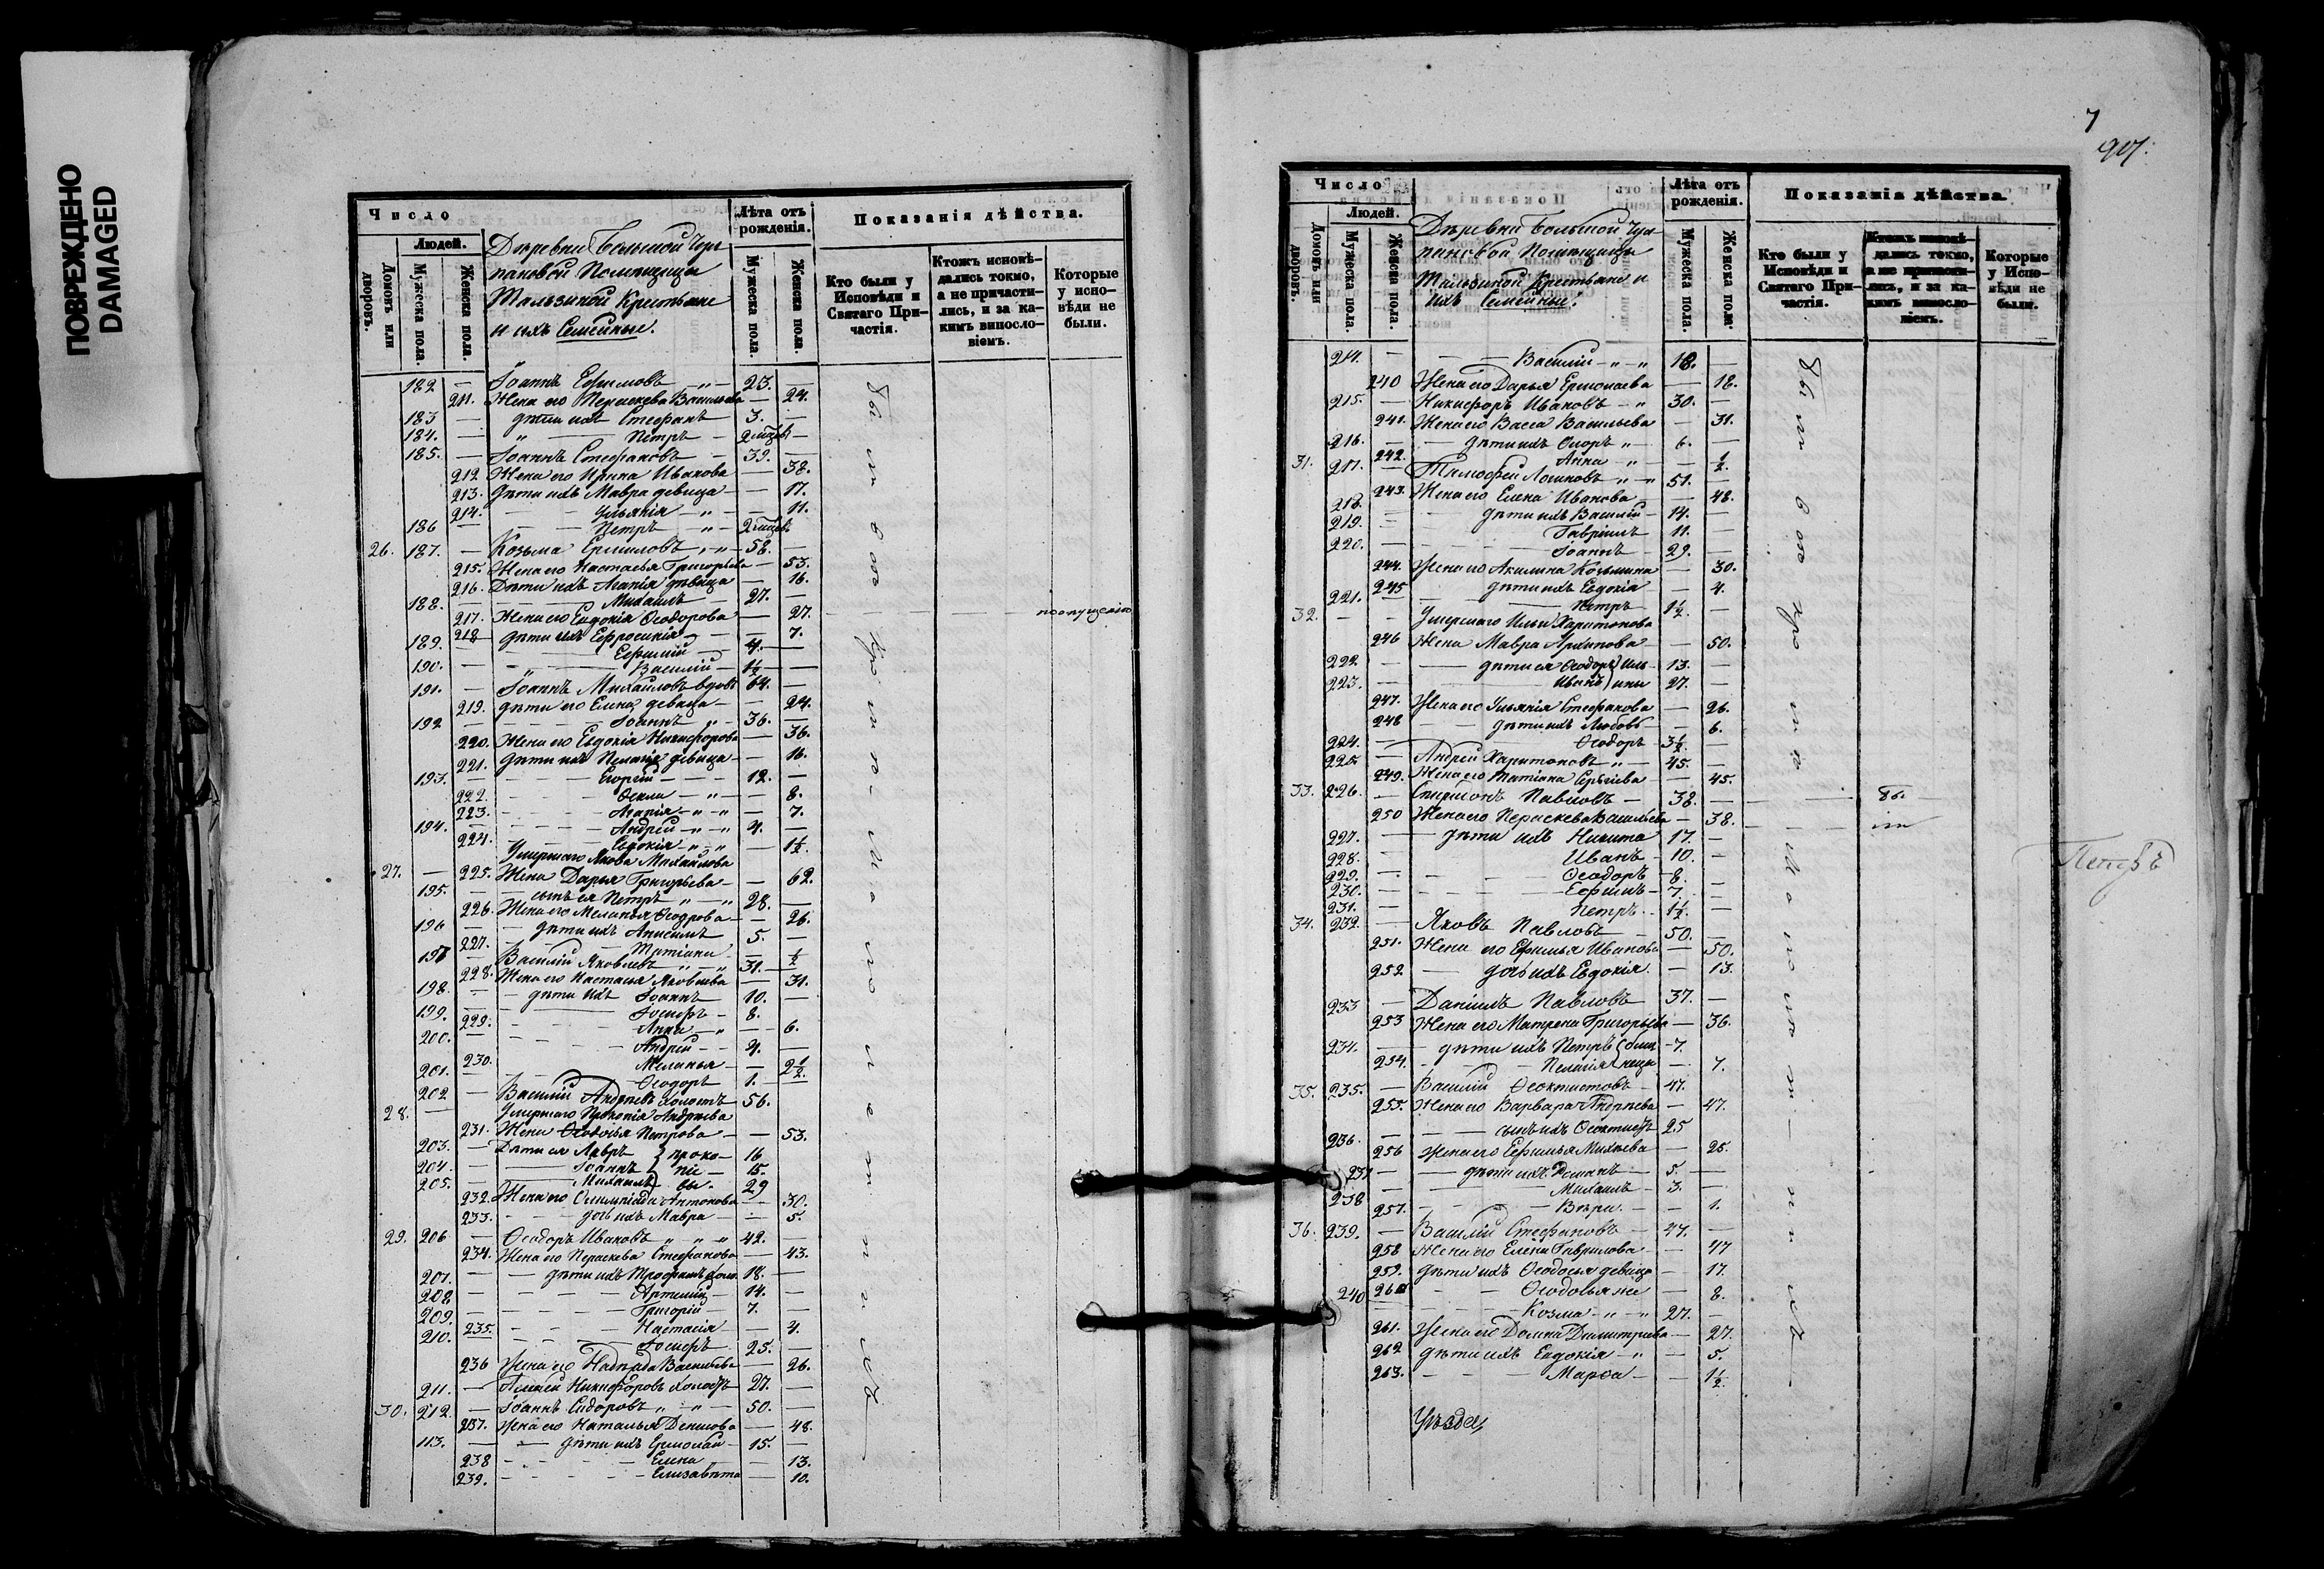 ПОВРЕЖДЕНО
DAMAGED
Число
Людей.
Домовъ или дворовъ.
Мужеска пола.
Женска пола.
Деревни Большой Чер
пановой Помѣщицы
Тальзиной Крестьяне
и ихъ Семейные.
Лѣта отъ рожденія.
Мужеска пола.
Женска пола.
Показанія дѣйства.
Кто были у Исповѣди и Святаго Причастія.
Ктожъ исповѣдались токмо, а не причастились, и за какимъ винословіемъ.
Которые у исповѣди не были.
182 — Іоаннъ Ефимовъ 23. —
211. Жена его Пераскева Васильева — 24.
183 — дѣти ихъ Стефанъ 3. —
184. — Петръ 2 мцев —
185. — Іоаннъ Стефановъ — 39. —
212 Жена его Ирина Иванова — 38.
213. дѣти ихъ Мавра девица — 17.
214. — Ульянія — 11.
186 — Петръ 2 мцев
26. 187. — Козьма Ермиловъ 58. —
215. Жена его Настасья Григорьева — 53.
216. Дѣти ихъ Агапія дѣвица — 16.
188. — Михаилъ — 27. —
217. Жена его Евдокія Ѳеодорова — 27. по опущенію
218 — дѣти ихъ Ефросинія — 7.
189. — Ефимій — 4. —
190. — Василій — 1½ —
191. — Іоаннъ Михайловъ вдовъ 64. —
219. дѣти его Елена девица — 24.
192 — Іоаннъ — 36. —
220. Жена его Евдокія Никифорова — 36.
221. дѣти ихъ Пелагія девица — 16.
193. — Георгій — 12. —
222. — Ѳекла — 8.
223. — Агапія — 7.
194. — Андрей — 4. —
224. — Евдокія — 1½.
Умершаго Якова Михайлова
27. — 225. Жена Дарья Григорьева — 62.
195. — сынъ ея Петръ — 28. —
226. Жена его Меланья Ѳеодорова — 26.
196 — дѣти ихъ Анисимъ 5. —
227. — Татіана — ½
197 — Василій Яковлевъ 31. —
228. Жена его Настасья Яковлева — 31.
198. — дѣти ихъ Іоаннъ 10. —
199. — Іосифъ — 8.
229. — Анна — 6.
200. — Андрей — 4. —
230. — Меланья — 2½
201. — Ѳеодоръ 1. —
202 — Василій Андреевъ холостъ 56.
28. — Умершаго Прокопія Андреева
231. Жена Ѳеодосія Петрова — 53.
203. — Дѣти ея Лавръ } проко- 16
204. — Іоаннъ } піе- 15.
205. — Михаилъ } вы. 29
232. Жена его Олимпіада Антонова — 30.
233. — дочь ихъ Мавра — 5.
29. 206 — Ѳеодоръ Ивановъ 42. —
234. Жена его Пераскева Стефанова — 43.
207. — дѣти ихъ Трофимъ хол. 18. —
208 — Артемій — 14. —
209. — Григорій — 7. —
235. — Настасія — 4.
210. — Іосифъ — 25. —
236 Жена его Надежда Васильева — 26.
211. — Алексѣй Никифоровъ холостъ 27. —
30. 212. — Іоаннъ Сидоровъ — 50. —
237. Жена его Наталья Денисова — 48.
113. — дѣти ихъ Ермолай — 15. —
238 — Елена — 13.
239. — Елизавѣта — 10.
7
907.
Число
Людей.
Домовъ или дворовъ.
Мужеска пола.
Женска пола.
Деревни Большой Чер
пановой Помѣщицы
Тальзиной Крестьяне и
ихъ Семейные.
Лѣта отъ рожденія.
Мужеска пола.
Женска пола.
Показанія дѣйства.
Кто были у Исповѣди и Святаго Причастія.
Ктожъ исповѣдались токмо, а не причастились, и за какимъ винословіемъ.
Которые у Исповѣди не были.
214. — Василій — 18. —
240 Жена его Дарья Ермолаева — 18.
215. — Никифоръ Ивановъ — 30. —
241. Жена его Васса Васильева — 31.
216. — дѣти ихъ 6. —
242. — Анна — ½.
31. 217. — Тимофей Логиновъ 51. —
243. Жена его Елена Иванова — 48.
218. — дѣти ихъ Василій — 14. —
219. — Гавріилъ 11. —
220. — Іоаннъ 29. —
244. Жена его Акилина Козьмина — 30.
245 — дѣти ихъ Евдокія — 4.
221. — Петръ 1½. —
32. — Умершаго Ильи Харитонова
246 Жена Мавра Архипова — 50.
222. — дѣти ея Ѳеодоръ } Иль- 13. —
223. — Иванъ } ины 27. —
247. Жена его Ульянія Стефанова — 26.
248 — дѣти ихъ Любовь — 6.
224. — Ѳеодоръ — 3½. —
225. — Андрей Харитоновъ — 45. —
249. Жена его Татіана Сергѣева — 45.
33. 226. — Спиридонъ Павловъ — 38. — бы
250 Жена его Пераскева Васильева — 38. — ли
227. — дѣти ихъ Никита 17. —
228. — Иванъ — 10. —
229. — Ѳеодоръ — 8. —
230. — Ефимъ — 7. —
231. — Петръ 1½. —
34. 232. — Яковъ Павловъ 50. —
251. Жена его Ефимья Иванова — 50.
252 — дочь ихъ Евдокія — 13.
233 — Даніилъ Павловъ 37. —
253 Жена его Матрена Григорьева — 36.
234. — дѣти ихъ Петръ } близ- 7.
254. — Пелагія } неца — 7.
35. 235. — Василій Ѳеоктистовъ 47. —
255. Жена его Варвара Андреева — 47.
236. — сынъ ихъ Ѳеоктистъ 25
256 Жена его Ефимья Михеева — 25.
237 — дѣти ихъ Романъ — 5. —
238 — Михаилъ — 3. —
257. — Вѣра — 1.
36. 239. — Василій Стефановъ — 47. —
258 Жена его Елена Гаврилова — 47
259. дѣти ихъ Ѳеодосья девица — 17.
260 — Ѳеодосья же — 8.
240 — Козма — 27. —
261. Жена его Домна Димитріева — 27.
262 дѣти ихъ Евдокія — 5.
263. — Марѳа — 1½.
Уѣзда